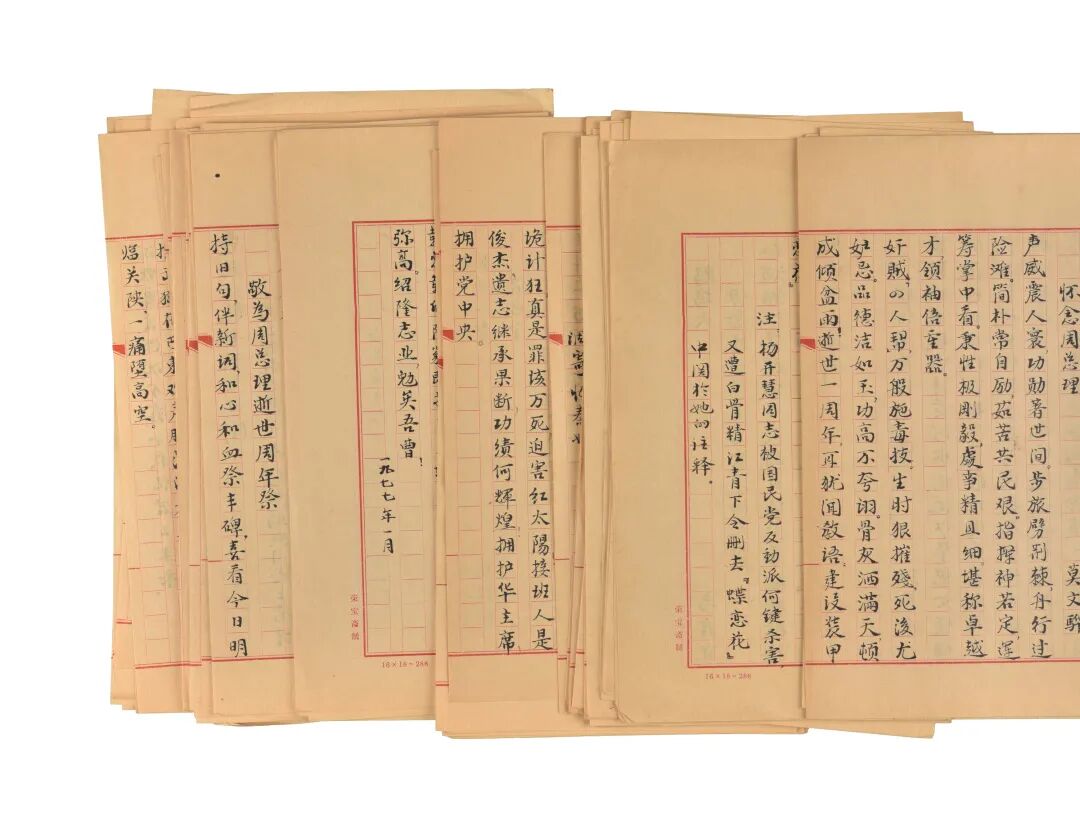 怀念周总理
莫文骅
声威震人寰功勋著世间。步旅劈荆棘,舟行过
险滩。简朴常自励,茹苦共民艰。指挥神若定,運
筹掌中看。秉性极刚毅,處事精且细。堪称卓越
才,领袖倍重器。
奸贼四人帮,万般施毒技。生时狠摧残,死後尤
妒忌。品德洁如玉,功高不夸诩。骨灰洒满天,顿
成倾盆雨。逝世一周年,耳犹闻教语:建设装甲
注:杨开慧同志被国民党反动派何键杀害,
又遭白骨精江青下令删去『蝶恋花』
中关於她的注释。
荣宝斋制
16×18=288
诡计狂,真是罪该万死迫害红太陽,接班人是
俊杰,遗志继承果断功绩何辉煌。拥护华主席
拥护党中央。
弥高。绍隆志业,勉矣吾曹!
一九七七年一月
荣宝斋制
16×18=288
敬為周总理逝世周年祭
持旧句,伴新词,和心和血祭丰碑,喜看今日明
关陕,一痛堕高空。